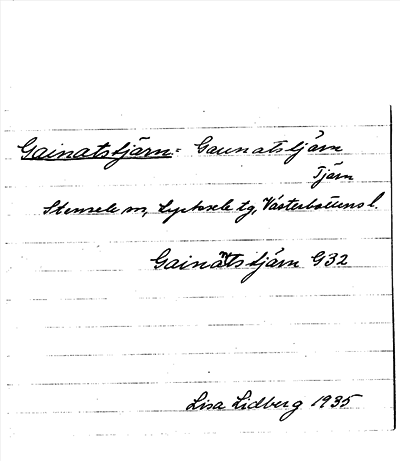 Gainatstjärn = Gaunatstjärn
Tjärn
Stensele sn, Lycksele tg, Västerbottens l.
Gainatstjärn G32
Lisa Lidberg 1935